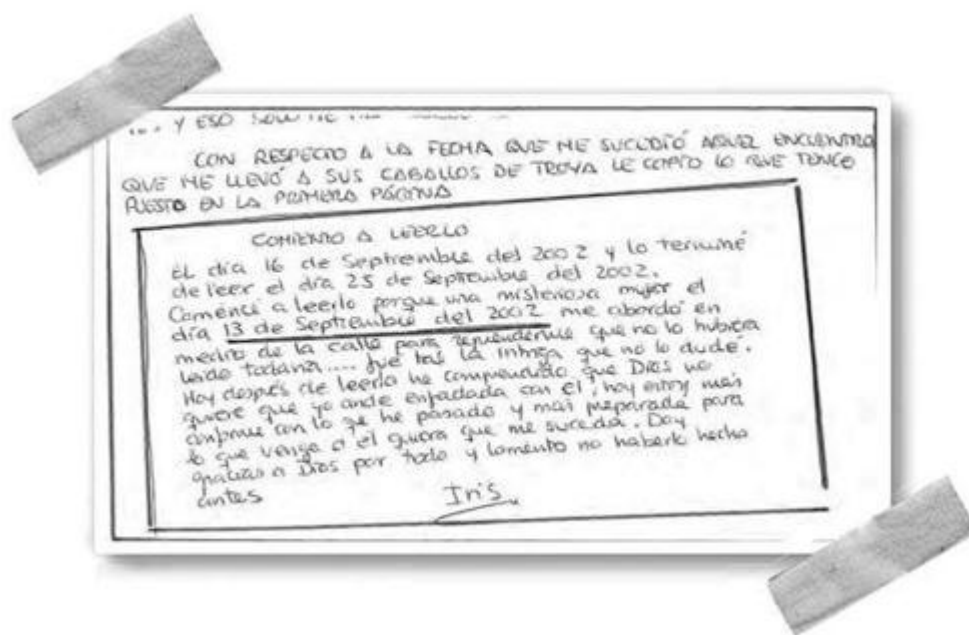 ... Y ESO SOLO ME HA
CON RESPECTO A LA FECHA QUE ME SUCEDIÓ AQUEL ENCUENTRO
QUE ME LLEVÓ A SUS CABALLOS DE TROYA LE COPIO LO QUE TENGO
PUESTO EN LA PRIMERA PÁGINA
COMIENZO A LEERLO
EL día 16 de Septiembre del 2002 y lo terminé
de leer el día 25 de Septiembre del 2002.
Comencé a leerlo porque una misteriosa mujer el
día 13 de Septiembre del 2002 me abordó en
medio de la calle para reprenderme que no lo hubiera
leido todavía.... fue tal la intriga que no lo dudé.
Hoy después de leerlo he comprendido que Dios no
quiere que yo ande enfadada con el, hoy estoy más
conforme con lo qe he pasado y mas preparada para
lo que venga o el quiera que me suceda. Doy
gracias a Dios por todo y lamento no haberlo hecho
antes
Iris